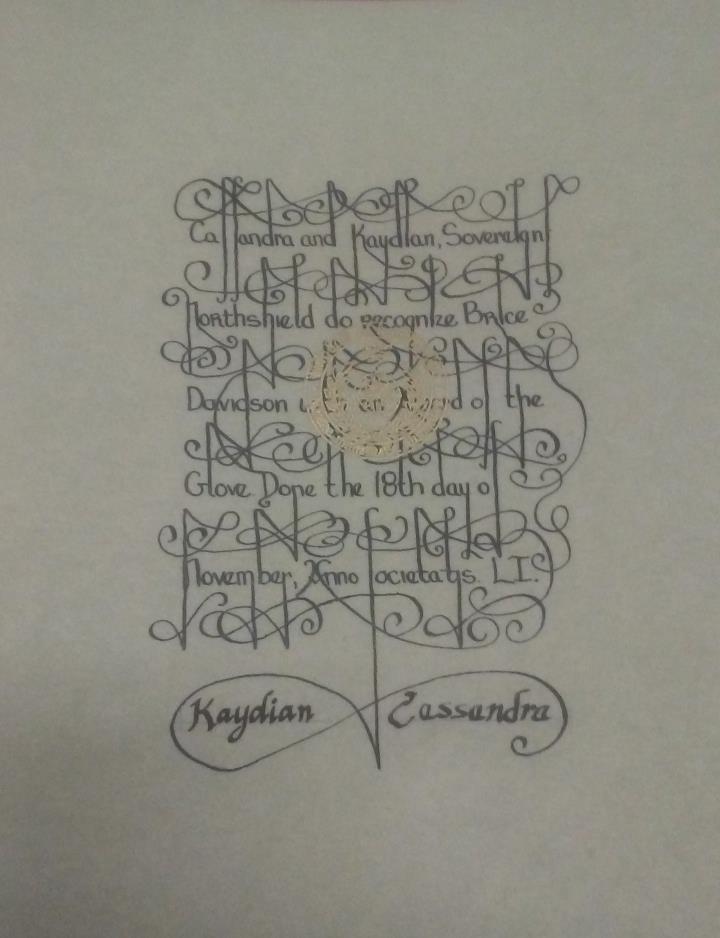 Cassandra and Kaydian, Sovereign
Northshield do recognize Brice
Davidson with an Award of the
Glove. Done the 18th day of
November, Anno Societatis LI.
Kaydian Cassandra